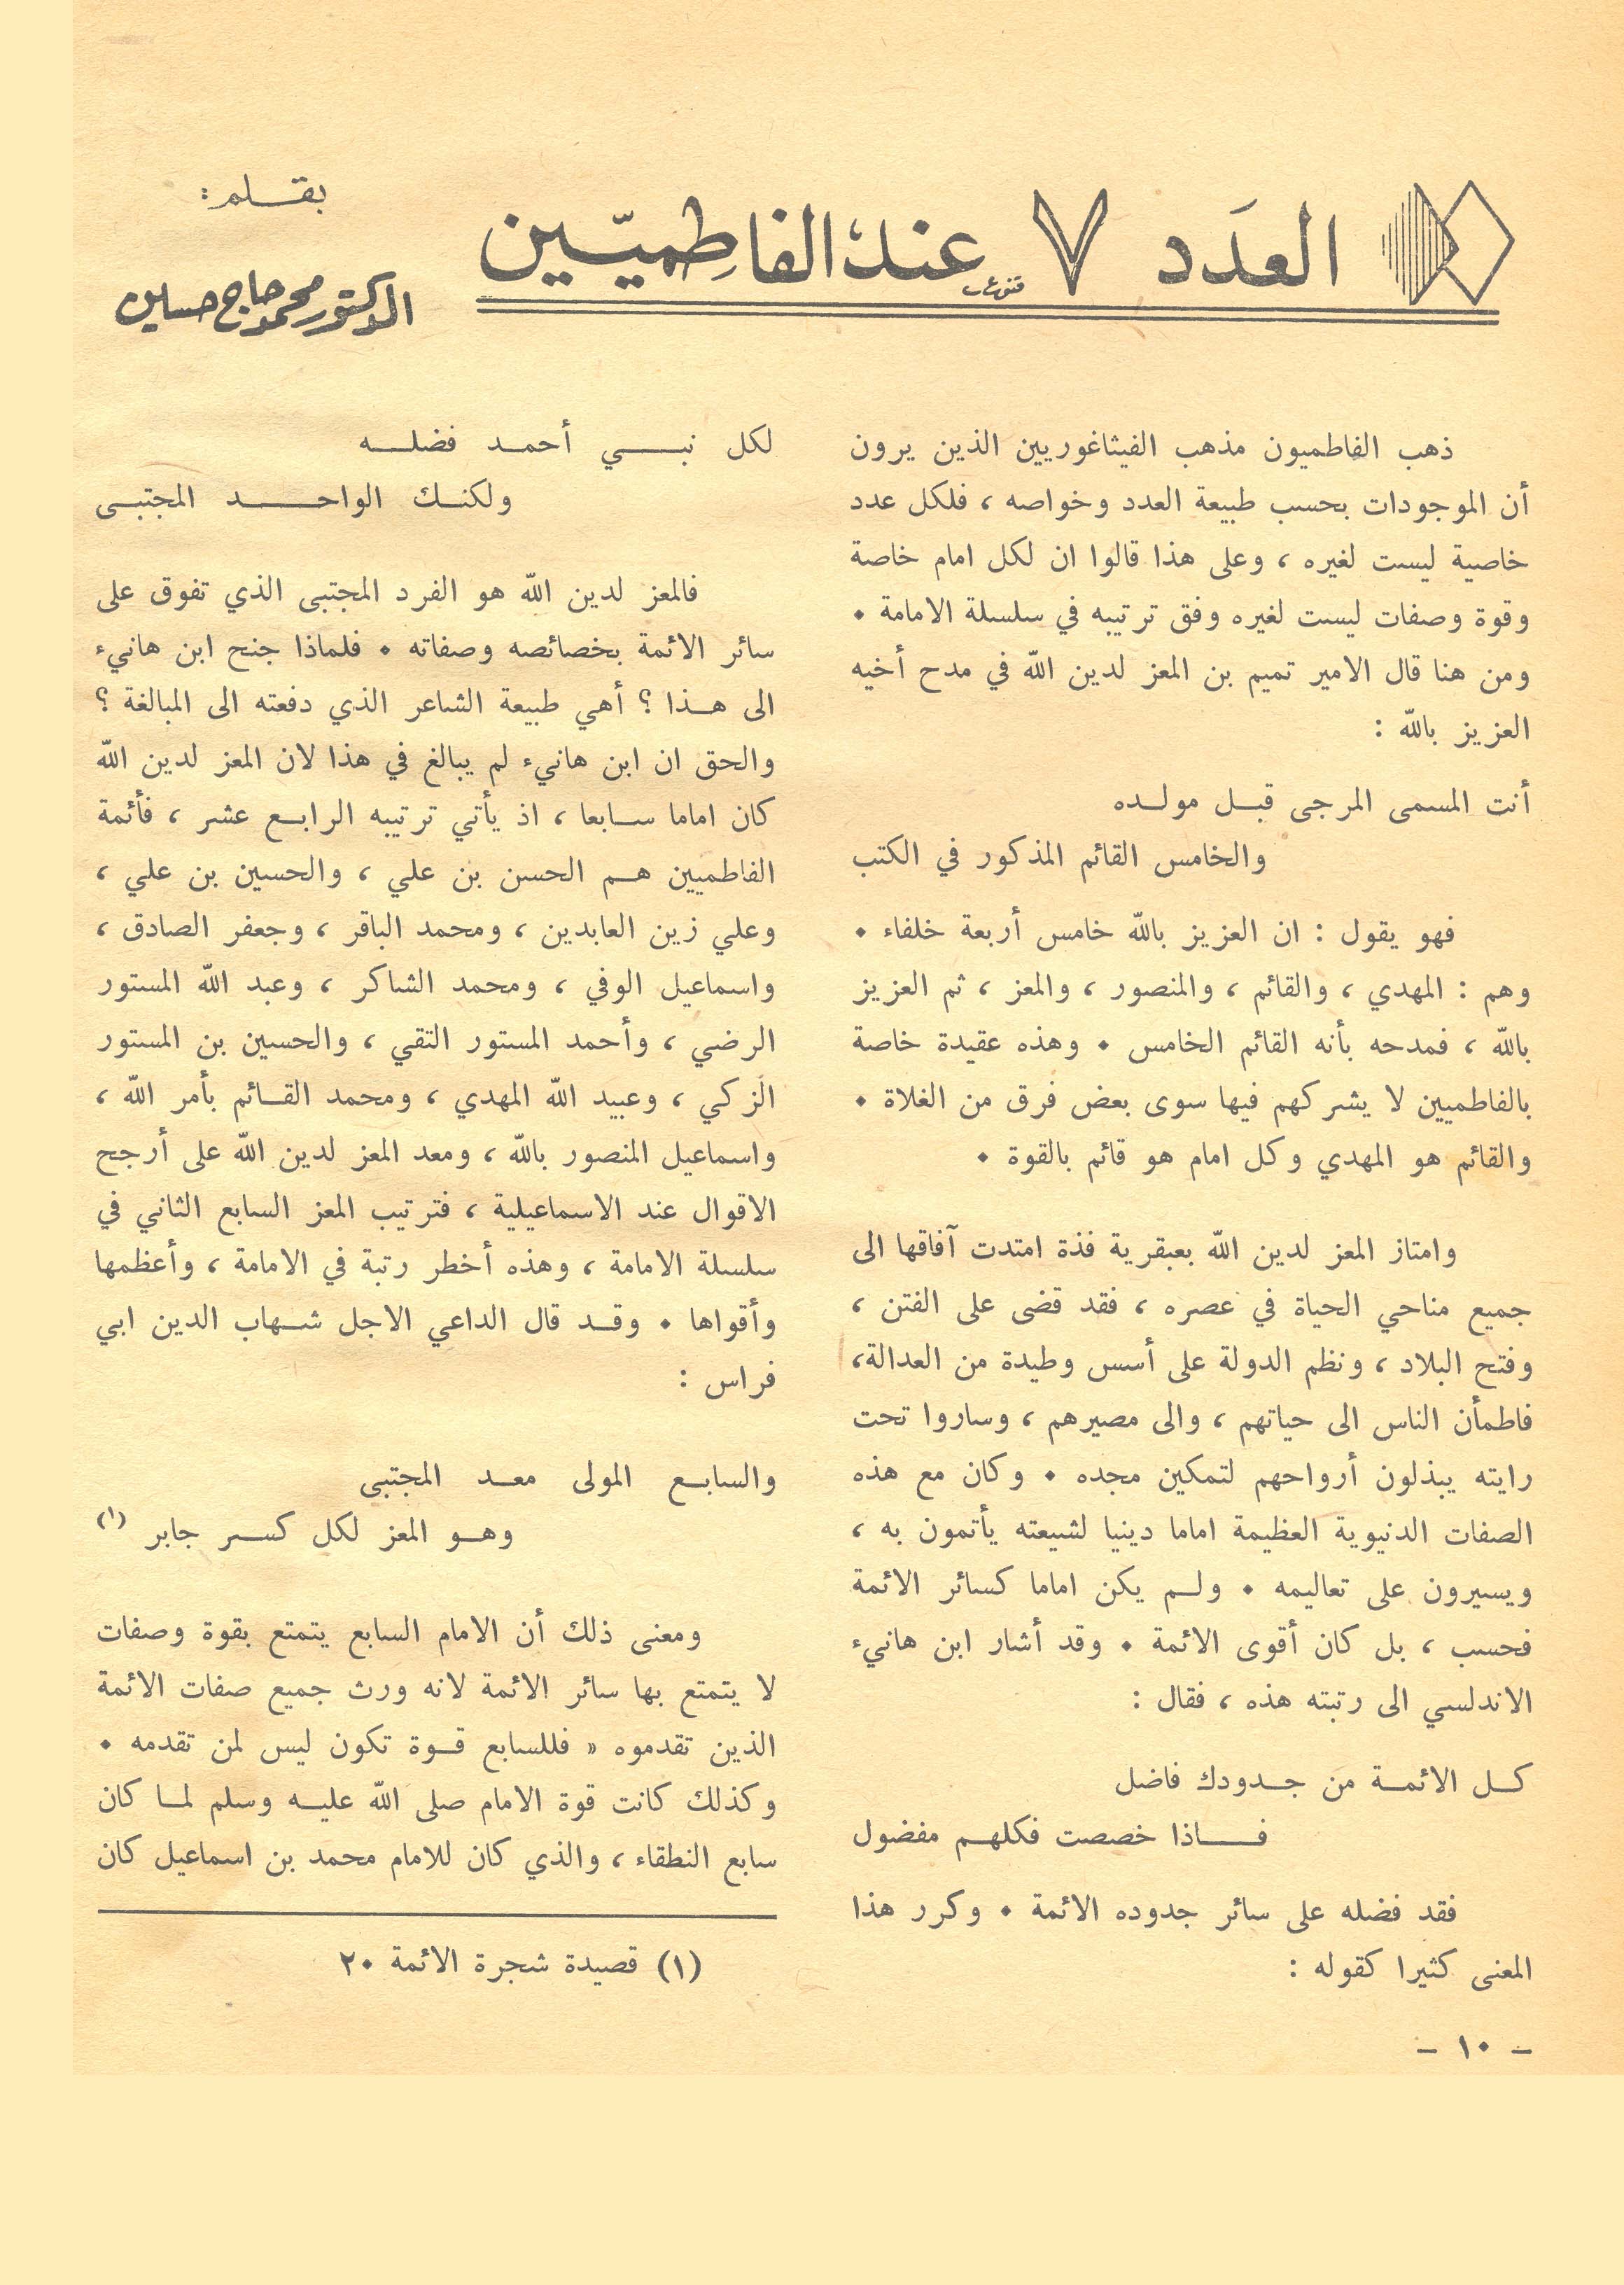 العدد ٧ عند الفاطميّين
بقلم:
الدكتور محمود حاج حسين
ذهب الفاطميون مذهب الفيثاغوريين الذين يرون
أن الموجودات بحسب طبيعة العدد وخواصه ، فلكل عدد
خاصية ليست لغيره ، وعلى هذا قالوا ان لكل امام خاصة
وقوة وصفات ليست لغيره وفق ترتيبه في سلسلة الامامة ٠
ومن هنا قال الامير تميم بن المعز لدين الله في مدح أخيه
العزيز بالله :
أنت المسمى المرجى قبل مولده
والخامس القائم المذكور في الكتب
فهو يقول : ان العزيز بالله خامس أربعة خلفاء ٠
وهم : المهدي ، والقائم ، والمنصور ، والمعز ، ثم العزيز
بالله ، فمدحه بأنه القائم الخامس ٠ وهذه عقيدة خاصة
بالفاطميين لا يشركهم فيها سوى بعض فرق من الغلاة ٠
والقائم هو المهدي وكل امام هو قائم بالقوة ٠
وامتاز المعز لدين الله بعبقرية فذة امتدت آفاقها الى
جميع مناحي الحياة في عصره ، فقد قضى على الفتن ،
وفتح البلاد ، ونظم الدولة على أسس وطيدة من العدالة،
فاطمأن الناس الى حياتهم ، والى مصيرهم ، وساروا تحت
رايته يبذلون أرواحهم لتمكين مجده ٠ وكان مع هذه
الصفات الدنيوية العظيمة اماما دينيا لشيعته يأتمون به ،
ويسيرون على تعاليمه ٠ ولم يكن اماما كسائر الائمة
فحسب ، بل كان أقوى الائمة ٠ وقد أشار ابن هانيء
الاندلسي الى رتبته هذه ، فقال :
كل الائمة من جدودك فاضل
فاذا خصصت فكلهم مفضول
فقد فضله على سائر جدوده الائمة ٠ وكرر هذا
المعنى كثيرا كقوله :
لكل نبي أحمد فضله
ولكنك الواحد المجتبى
فالمعز لدين الله هو الفرد المجتبى الذي تفوق على
سائر الائمة بخصائصه وصفاته ٠ فلماذا جنح ابن هانيء
الى هذا ؟ أهي طبيعة الشاعر الذي دفعته الى المبالغة ؟
والحق ان ابن هانيء لم يبالغ في هذا لان المعز لدين الله
كان اماما سابعا ، اذ يأتي ترتيبه الرابع عشر ، فأئمة
الفاطميين هم الحسن بن علي ، والحسين بن علي ،
وعلي زين العابدين ، ومحمد الباقر ، وجعفر الصادق ،
واسماعيل الوفي ، ومحمد الشاكر ، وعبد الله المستور
الرضي ، وأحمد المستور التقي ، والحسين بن المستور
الزكي ، وعبيد الله المهدي ، ومحمد القائم بأمر الله ،
واسماعيل المنصور بالله ، ومعد المعز لدين الله على أرجح
الاقوال عند الاسماعيلية ، فترتيب المعز السابع الثاني في
سلسلة الامامة ، وهذه أخطر رتبة في الامامة ، وأعظمها
وأقواها ٠ وقد قال الداعي الاجل شهاب الدين ابي
فراس :
والسابع المولى معد المجتبى
وهو المعز لكل كسر جابر (١)
ومعنى ذلك أن الامام السابع يتمتع بقوة وصفات
لا يتمتع بها سائر الائمة لانه ورث جميع صفات الائمة
الذين تقدموه « فللسابع قوة تكون ليس لمن تقدمه ٠
وكذلك كانت قوة الامام صلى الله عليه وسلم لما كان
سابع النطقاء ، والذي كان للامام محمد بن اسماعيل كان
(١) قصيدة شجرة الائمة ٢٠
– ١٠ –